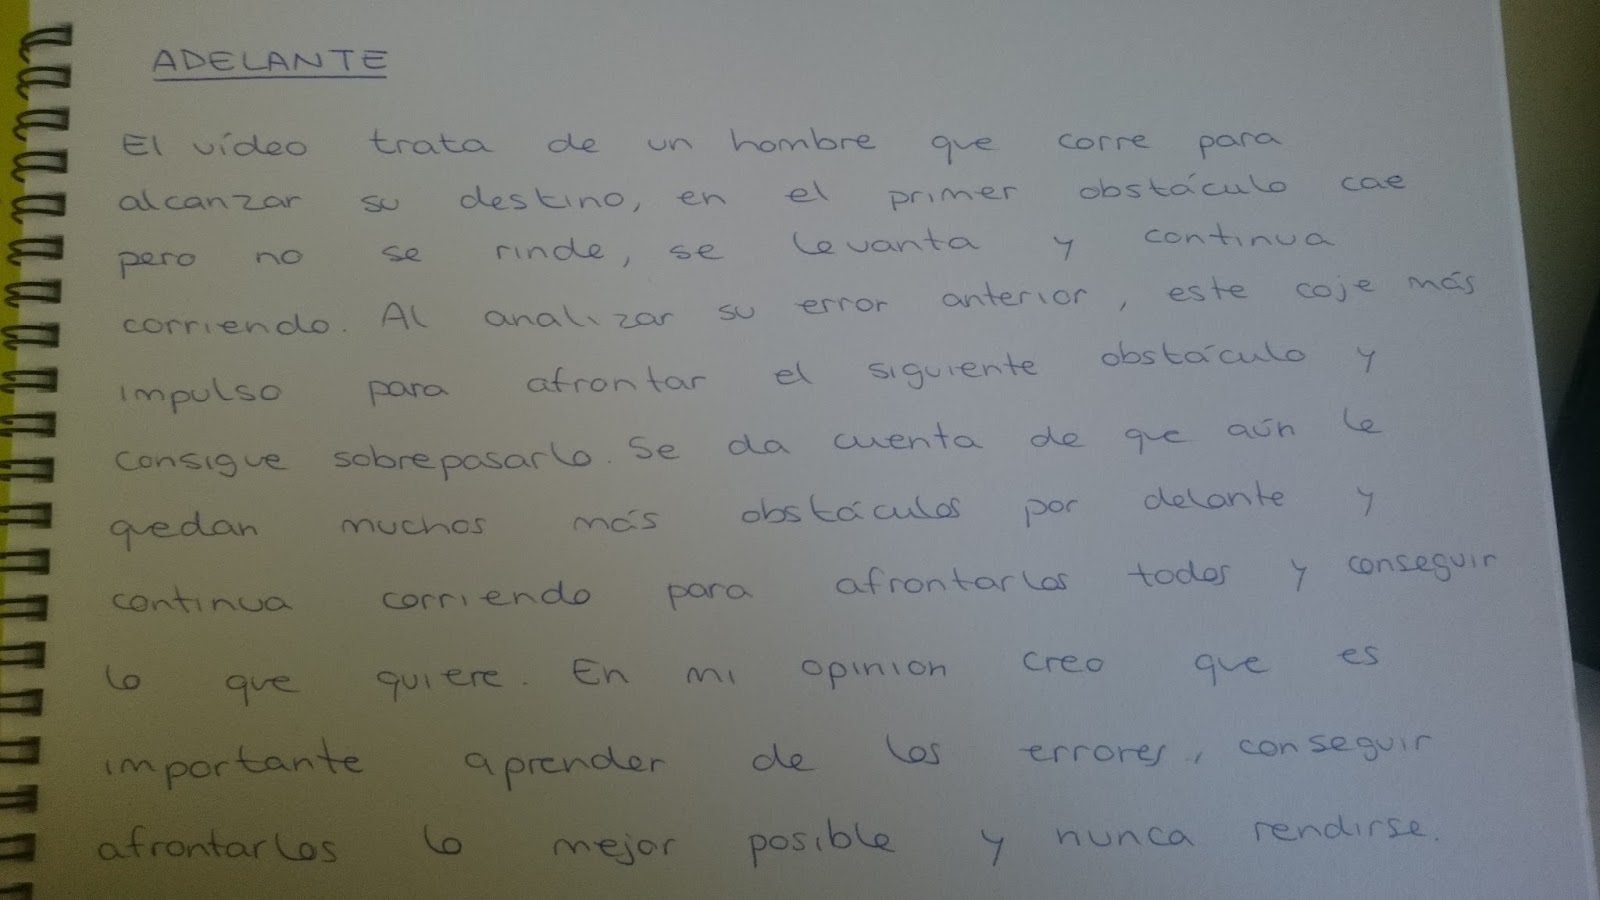 ADELANTE
El vídeo trata de un hombre que corre para
alcanzar su destino, en el primer obstáculo cae
pero no se rinde, se levanta y continua
corriendo. Al analizar su error anterior, este coje más
impulso para afrontar el siguiente obstáculo y
consigue sobrepasarlo. Se da cuenta de que aún le
quedan muchos más obstáculos por delante y
continua corriendo para afrontarlos todos y conseguir
lo que quiere. En mi opinion creo que es
importante aprender de los errores, conseguir
afrontarlos lo mejor posible y nunca rendirse.